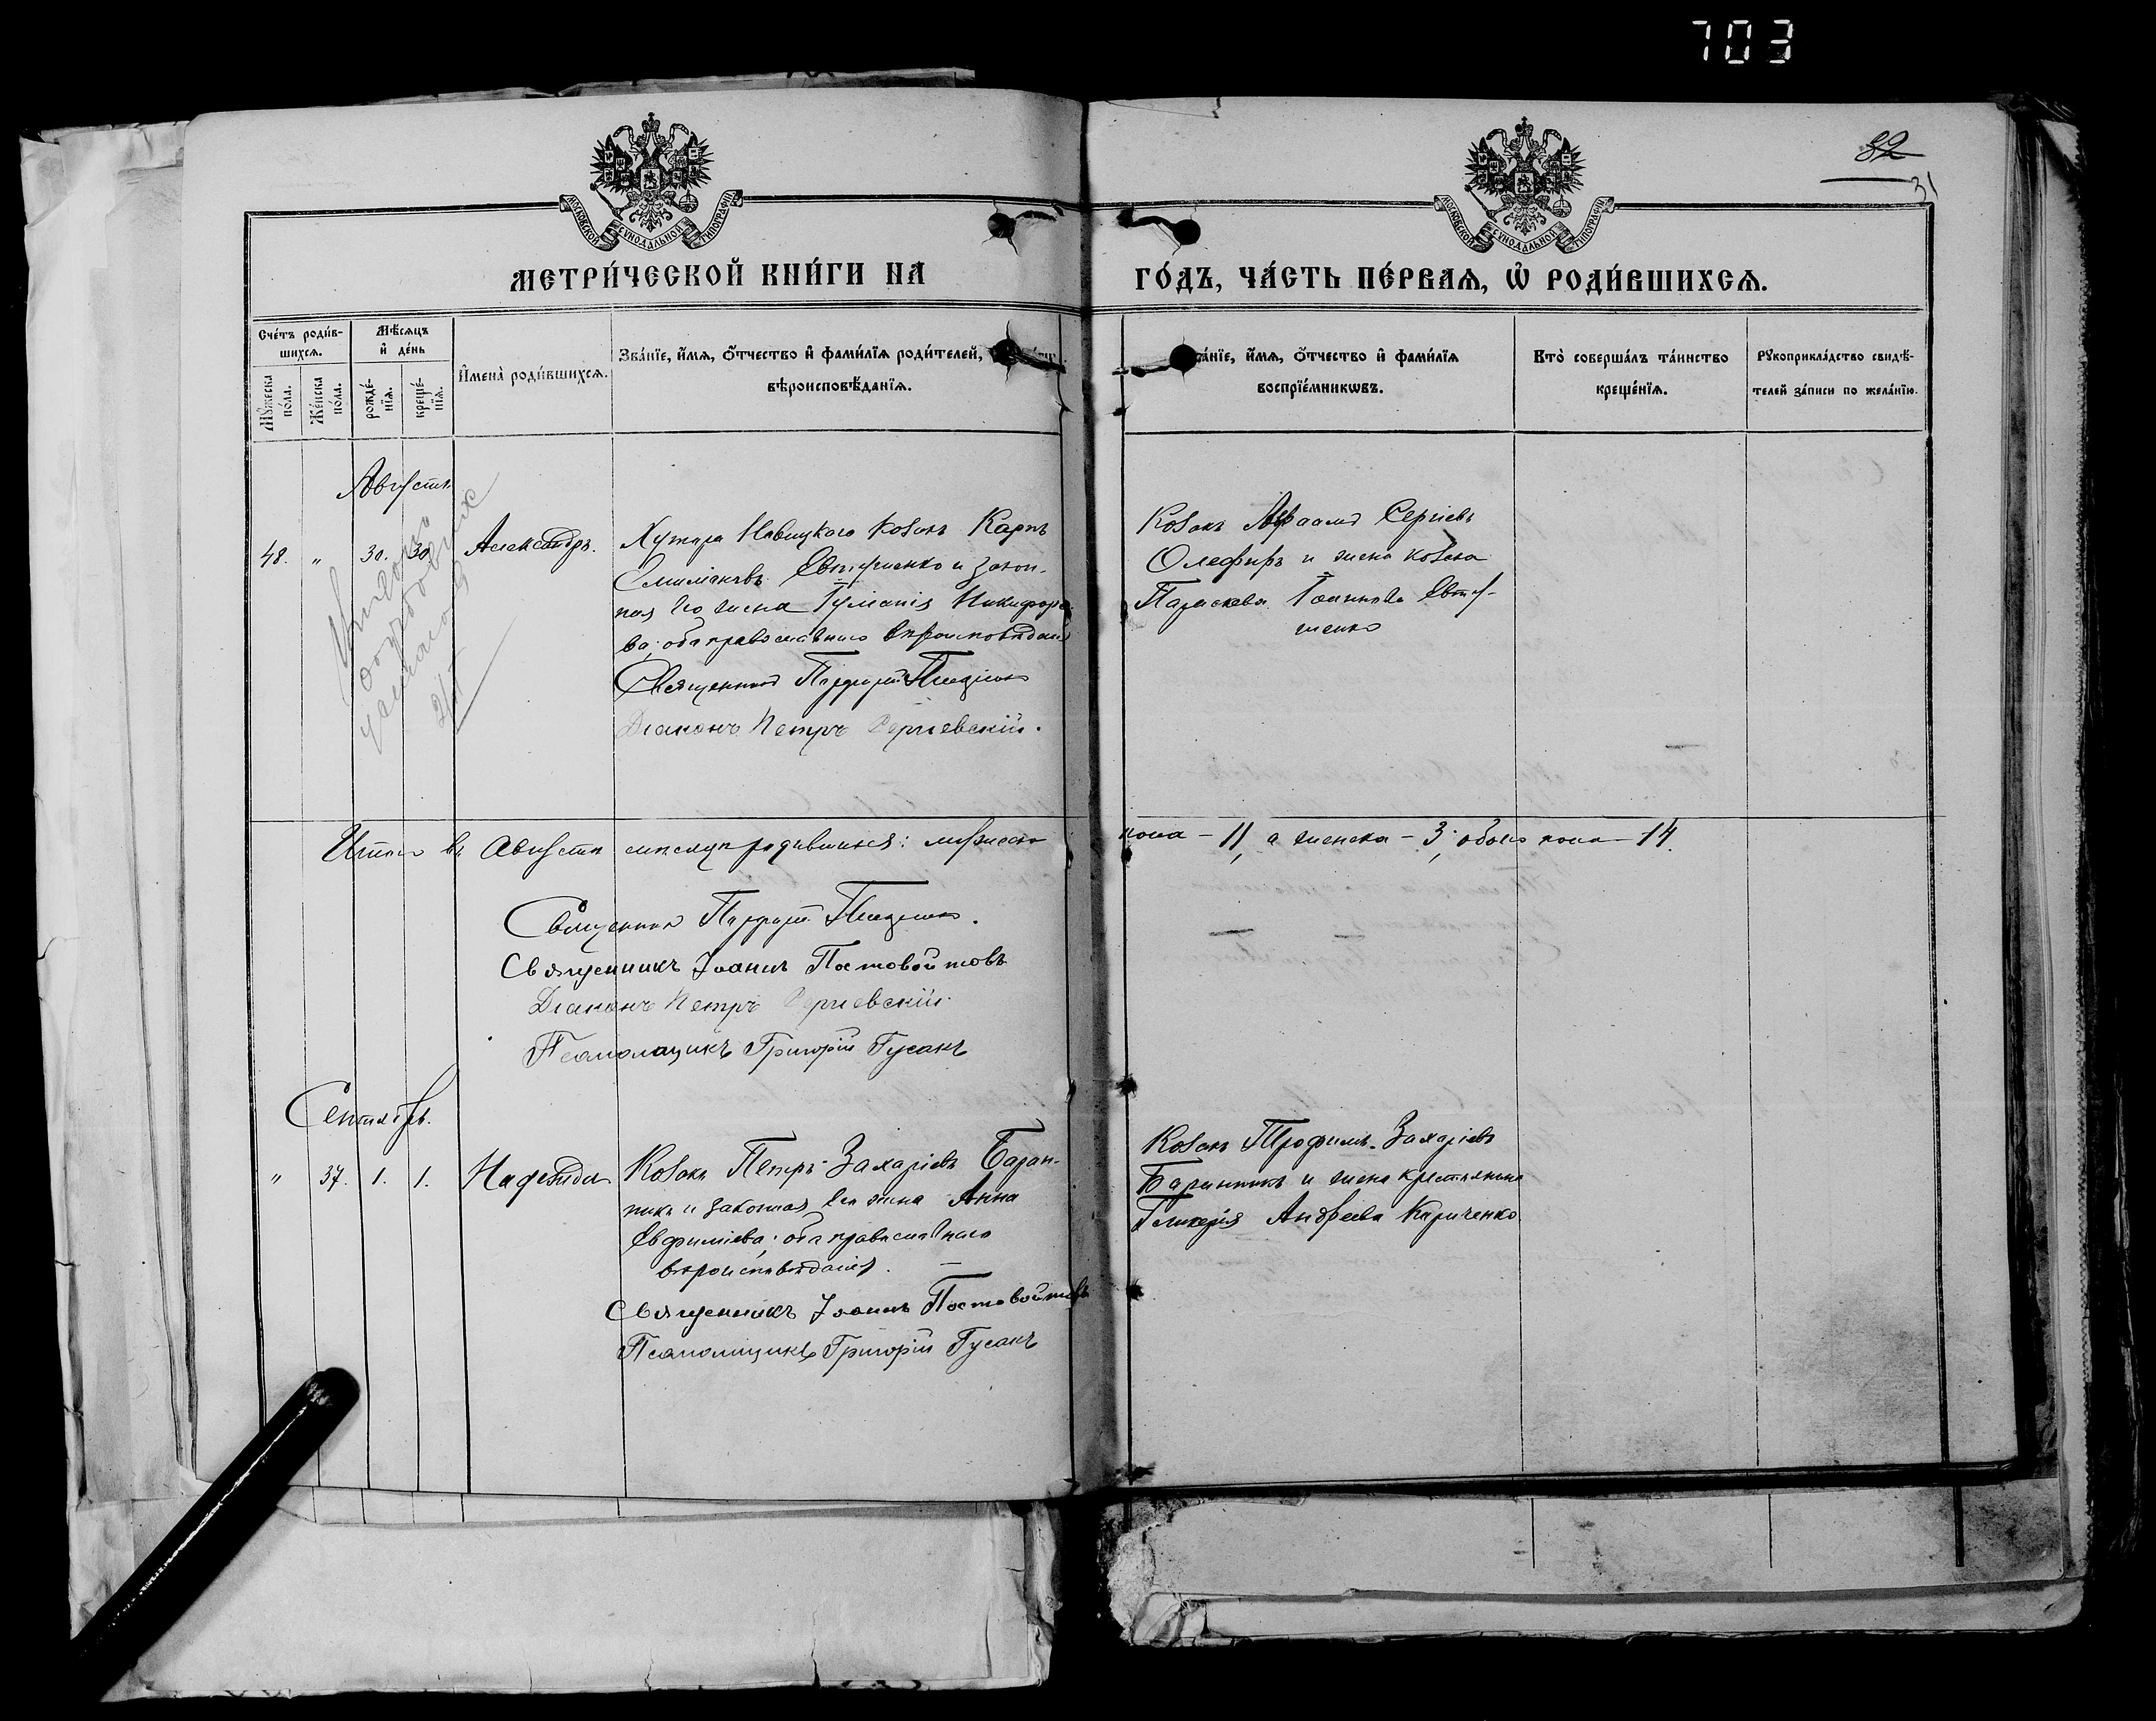 703
82
31
МОСКОВСКОЙ СУНОДАЛЬНОЙ ТИПОГРАФІИ
МОСКОВСКОЙ СУНОДАЛЬНОЙ ТИПОГРАФІИ
МЕТРИ́ЧЕСКОЙ КНИ́ГИ НА
ГО́ДЪ, ЧА́СТЬ ПЕ́РВАЯ, Ѡ РОДИ́ВШИХСЯ.
Сче́тъ роди́в-
шихся.
Мѣсяцъ
и де́нь
Му́жеска
по́ла.
Же́нска
по́ла.
рожде́-
нія.
креще́-
нія.
Имена̀ роди́вшихся.
Зва́ніе, и́мя, о́тчество и фами́лія роди́телей,
вѣроисповѣ́данія.
а́ніе, и́мя, о́тчество и фами́лія
воспріе́мниковъ.
Кто̀ соверша́лъ та́инство
креще́нія.
Рукоприкла́дство свидѣ́-
телей за́писи по жела́нію.
Августъ
48. " 30. 30. Александръ.
Хутора козакъ Карпъ
Евтушенко и закон-
ная его жена Никифоро-
ва; оба православнаго вѣроисповѣданія
Священникъ
Діаконъ Петръ Сергіевскій.
Козакъ Сергіевъ
Олефиръ и жена козака
Параскева Іоаннова Евту-
шенко
Итого въ Августѣ мѣсяцѣ родившихся: мужеска
пола – 11, а женска – 3; обоего пола – 14.
Священникъ
Священникъ Іоаннъ Постовойтовъ
Діаконъ Петръ Сергіевскій.
Псаломщикъ Григорій Гусакъ
Сентябрь.
" 37. 1. 1. Надежда
Козакъ Петръ Захаріевъ Баран-
никъ и законная его жена Анна
Евфиміева; оба православнаго
вѣроисповѣданія.
Священникъ Іоаннъ Постовойтовъ
Псаломщикъ Григорій Гусакъ
Козакъ Трофимъ Захаріевъ
Баранникъ и жена крестьянина
Гликерія Андреева Кириченко.